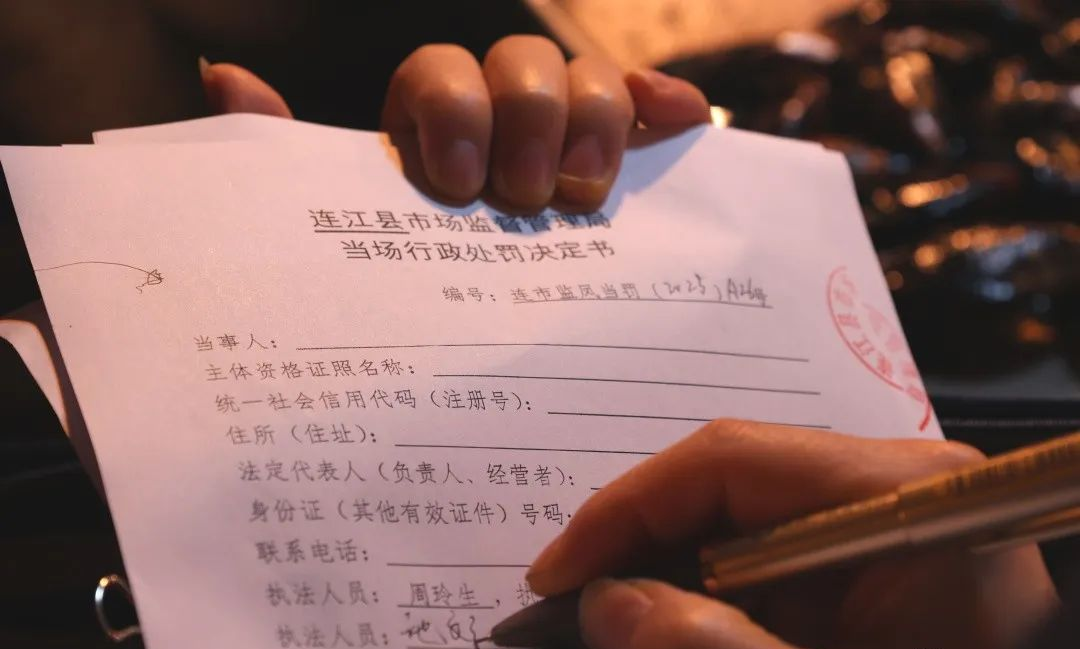 连江县市场监督管理局
当场行政处罚决定书
编号：连市监凤当罚（2023）A26号
当事人：
主体资格证照名称：
统一社会信用代码（注册号）：
住所（住址）：
法定代表人（负责人、经营者）：
身份证（其他有效证件）号码：
联系电话：
执法人员：周玲生，执
执法人员：